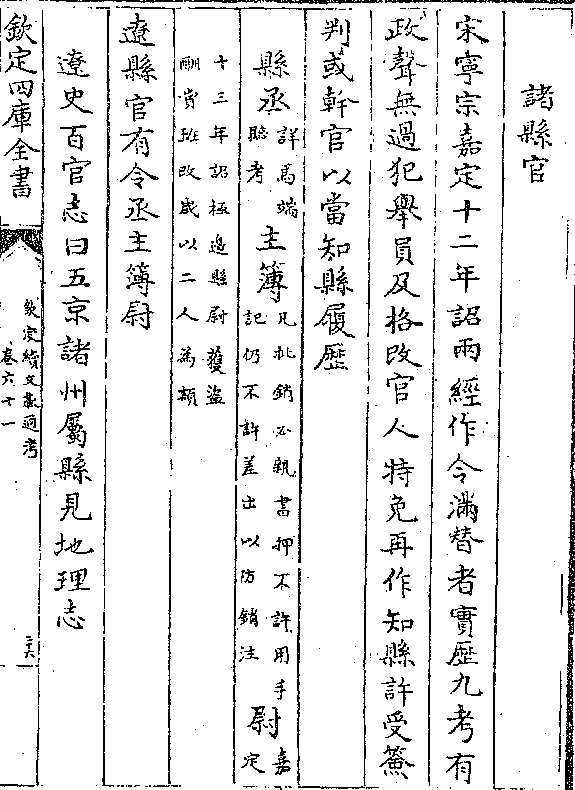 諸縣官
宋寧宗嘉定十二年詔兩經作令滿替者實歷九考有
政聲無過犯舉員及格改官人特免再作知縣許受簽
判或幹官以當知縣履歷
縣丞詳馬端臨考主簿凡批銷必親書押不許用手記仍不許差出以防銷注尉嘉定
十三年詔極邊縣尉獲盜酬賞班改歲以二人為額
遼縣官有令丞主簿尉
遼史百官志曰五京諸州屬縣見地理志
欽定四庫全書
欽定續文獻通考
卷六十一